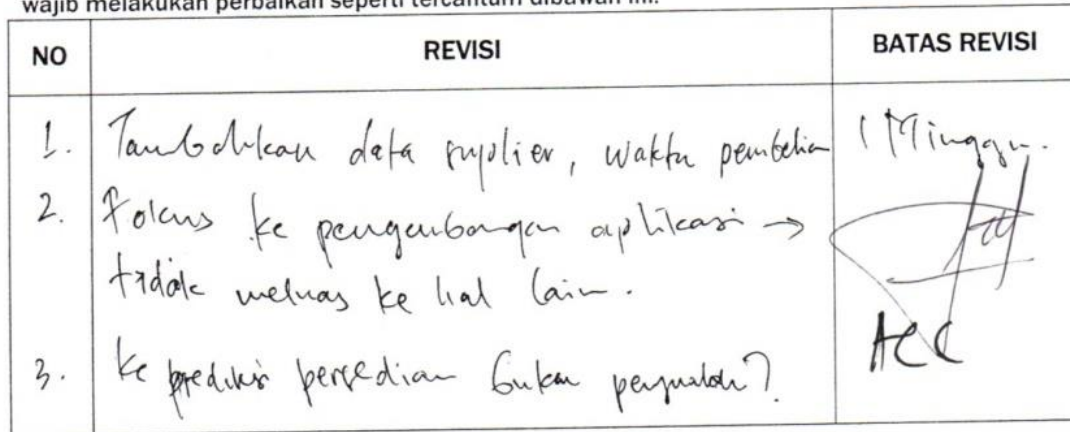 wajib melakukan perbaikan seperti tercantum dibawah ini:
NO REVISI BATAS REVISI
1. Tambahkan data suplier, waktu pembelian 1 Minggu.
2. Fokus ke pengembangan aplikasi →
tidak meluas ke hal lain.
ACC
3. ke prediksi persediaan bukan penjualan?